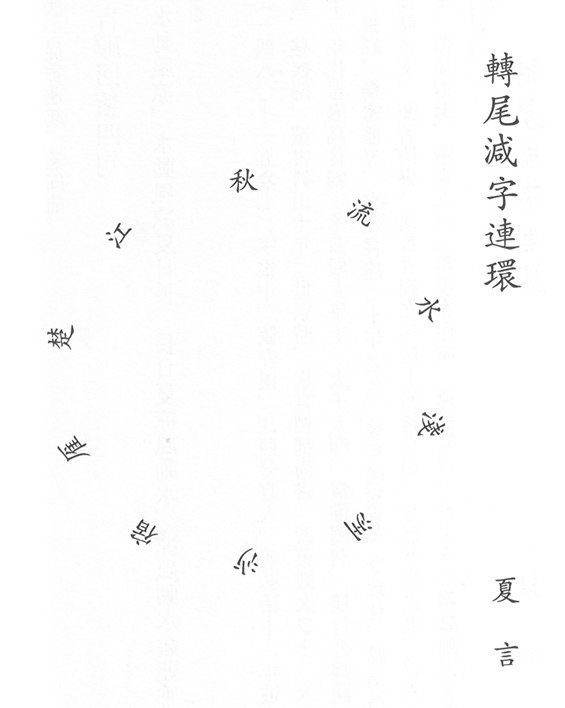 轉尾減字連環
夏言
秋江楚雁宿沙洲淺水流